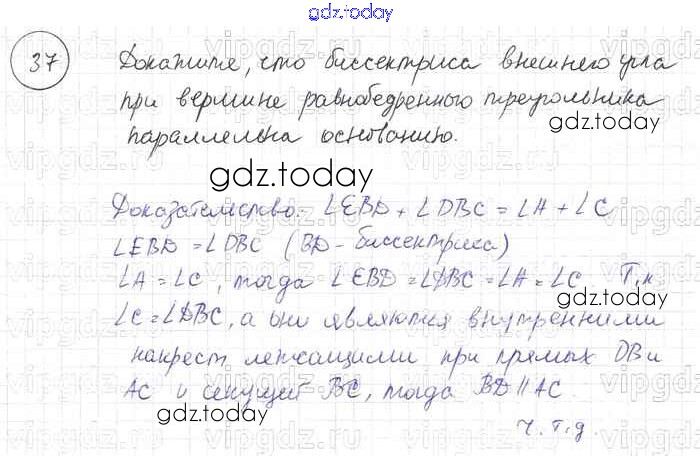 gdz.today
37 Докажите, что биссектриса внешнего угла
при вершине равнобедренного треугольника
параллельна основанию.
gdz.today
gdz.today
Доказательство: ∠EBD + ∠DBC = ∠A + ∠C
∠EBD = ∠DBC (BD - биссектриса)
∠A = ∠C, тогда ∠EBD = ∠DBC = ∠A = ∠C Т.к.
gdz.today
∠C = ∠DBC, а они являются внутренними
накрест лежащими при прямых DB и
AC и секущей BC, тогда BD || AC.
gdz.today
ч.т.д.